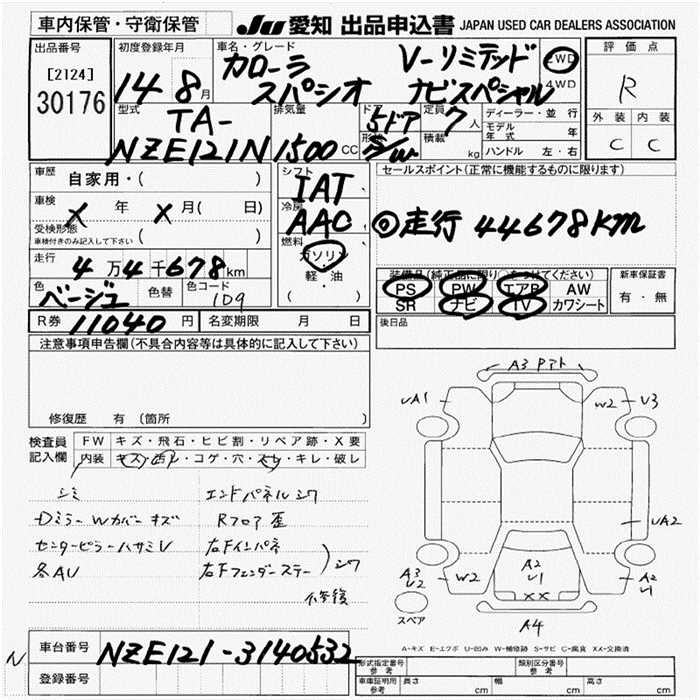 車内保管・守衛保管
JU 愛知 出品申込書 JAPAN USED CAR DEALERS ASSOCIATION
出品番号
[2124]
30176
初度登録年月
14 8月
車名・グレード
カローラ V-リミテッド
スパシオ ナビスペシャル
2WD
4WD
評価点
R
外装 内装
C C
型式
TA-
NZE121N
排気量
1500 CC
ドア
5ドア
形状
S/W
定員
7人
積載
kg
ディーラー・並行
モデル年式 年
ハンドル 左・右
車歴
自家用・( )
車検
X 年 X 月( 日)
受検形態
車検付きのみ記入して下さい ( )
走行
4万4千678km
色
ベージュ
色替
色コード
1D9
シフト
IAT
冷房
AAC
燃料
ガソリン
・
軽・油
( )
セールスポイント(正常に機能するものに限ります)
◎走行 44678KM
装備品(純正品に限り○をつけてください)
PS PW エアB AW
SR ナビ TV カワシート
新車保証書
有・無
後日品
R券 11040 円 名変期限 月 日
注意事項申告欄(不具合内容等は具体的に記入して下さい)
修復歴 有(箇所 )
検査員記入欄
FW キズ・飛石・ヒビ割・リペア跡・X要
内装 キズ・汚レ・コゲ・穴・スレ・キレ・破レ
シミ エンドパネルシワ
Dミラー Wカバーキズ Rフロア歪
センターピラーハサミV 右Fインパネ
各AU 右Fフェンダーステー シワ
修復
A3 Pアト
UA1 W2 U3
UA2
A3
U2
W2
A2
U1
XX
A2
U1
A4
スペア
A-キズ E-エクボ U-凹み W-補修跡 S-サビ C-腐食 XX-交換済
車台番号 NZE121-3140532
N
登録番号
形式指定番号
参考
類別区分番号
参考
車庫証明用
参考
長さ cm 幅 cm 高さ cm